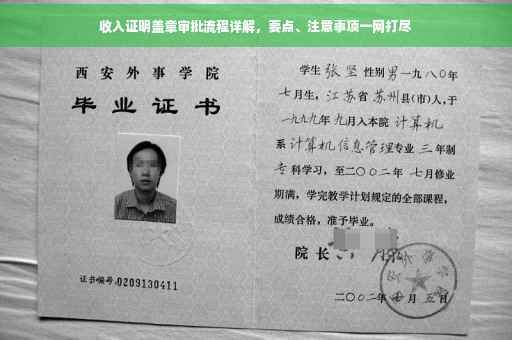 收入证明盖章审批流程详解，要点、注意事项一网打尽
西安外事学院
毕业证书
证书编号:0209130411
学生 张坚 性别 男 一九八〇年
七月生，江苏省苏州县(市)人,于
一九九九年九月入本院 计算机
系 计算机信息管理 专业 三 年制
专科学习，至二〇〇二年七月修业
期满，学完教学计划规定的全部课程，
成绩合格，准予毕业。
院长
二〇〇二年 月五日